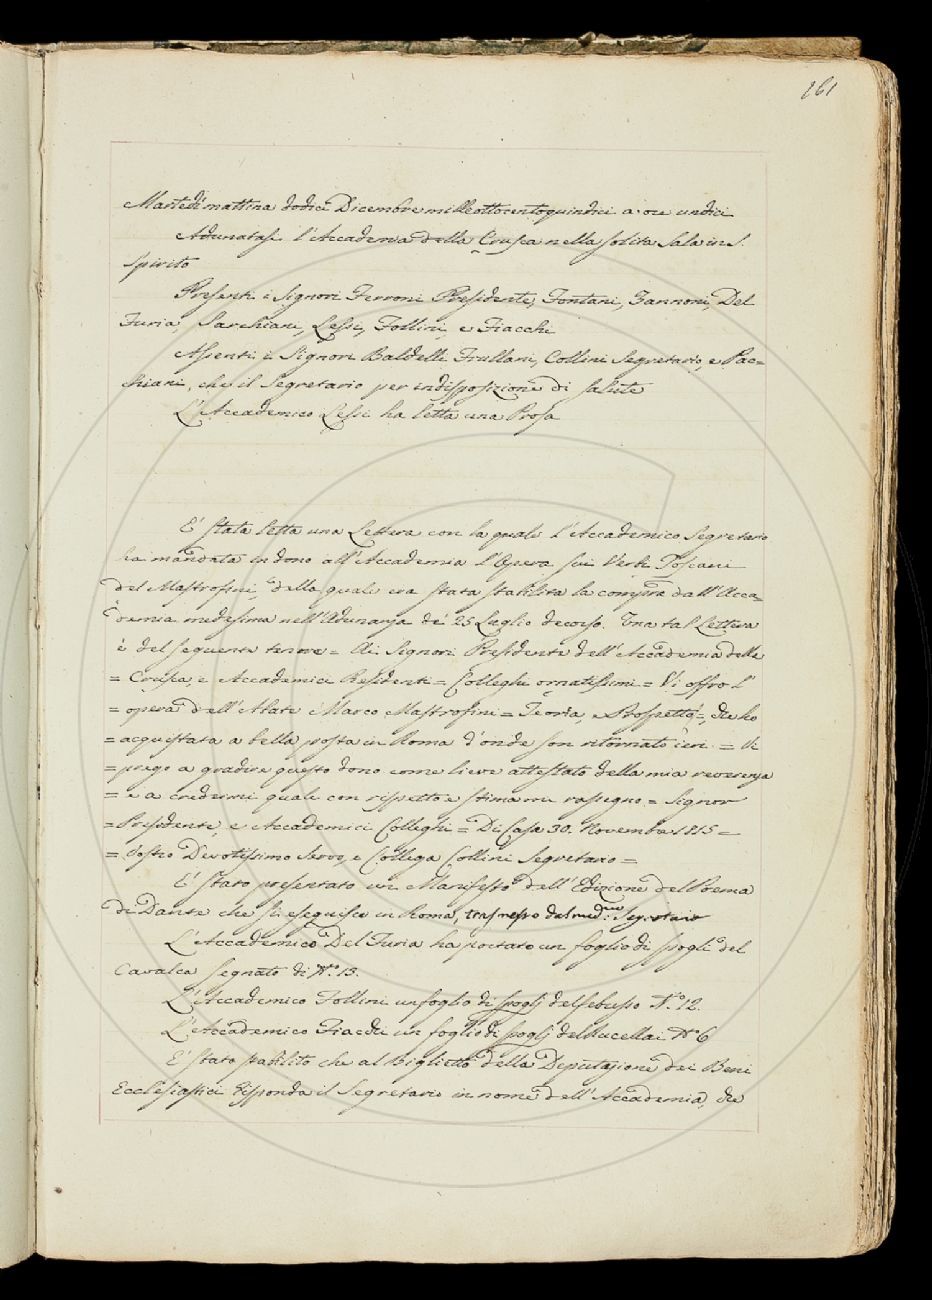 161
Martedì mattina dodici Dicembre milleottocentoquindici a ore undici
Adunatasi l'Accademia della Crusca nella solita Sala in S.
Spirito
Presenti i Signori Ferroni Presidente, Fontani, Zannoni, Del
Furia, Sarchiani, Lessi, Follini, e Fiacchi
Assenti i Signori Baldelli Frullani, Collini Segretario, e Pac=
chiani, che il Segretario per indisposizione di salute
L'Accademico Lessi ha letta una Prosa
E' stata letta una Lettera con la quale l'Accademico Segretario
ha mandata in dono all'Accademia l'Opera sui Verbi Toscani
del Mastrofini, della quale era stata stabilita la compra dall'Acca=
demia medesima nell'Adunanza de' 25 Luglio decorso. Una tal Lettera
è del seguente tenore = Ai Signori Presidente dell'Accademia della
= Crusca, e Accademici Residenti = Colleghi ornatissimi = Vi offro l'
= opera dell'Abate Marco Mastrofini = Teoria, e Prospetto =, che ho
= acquistata a bella posta in Roma d'onde son ritornato ieri. = Vi
= prego a gradire questo dono come lieve attestato della mia reverenza
= e a credermi quale con rispetto e stima mi rassegno = Signor
= Presidente, e Accademici Colleghi = Di Casa 30. Novembre 1815 =
= Vostro Devotissimo Servo, e Collega Collini Segretario =
E' stato presentato un Manifesto dell'Edizione del Poema
di Dante che si eseguisce in Roma, trasmesso dal med:mo Segretario
L'Accademico Del Furia ha portato un foglio di spogli del
Cavalca segnato di N.o 13.
L'Accademico Follini un foglio di spogli del N.o 12.
L'Accademico Fiacchi un foglio di spogli del Rucellai N.o 6
E' stato stabilito che al Biglietto della Deputazione dei Beni
Ecclesiastici risponda il Segretario in nome dell'Accademia, che